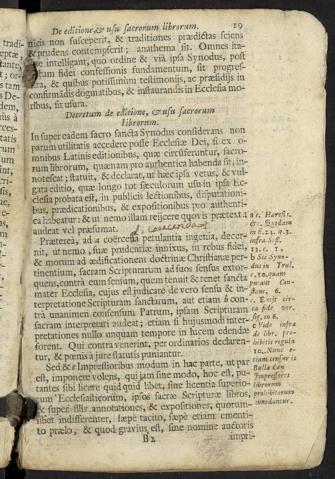 De editione, & usu sacrorum librorum. 19
nicis non susceperit, & traditiones prædictas sciens
& prudens contempserit; anathema sit. Omnes ita-
que intelligant, quo ordine & via ipsa Synodus, post
jactum fidei confessionis fundamentum, sit progres-
sura, & quibus potissimum testimoniis, ac præsidiis in
confirmādis dogmatibus, & instaurandis in Ecclesia mo-
ribus, sit usura.
Decretum de editione, & usu sacrorum
librorum.
In super eadem sacro sancta Synodus considerans non
parum utilitatis accedere posse Ecclesiæ Dei, si ex o-
mnibus Latinis editionibus, quæ circūferuntur, sacro-
rum librorum, quænam pro authentica habenda sit, in-
notescat; statuit, & declarat, ut hæc ipsa vetus, & vul-
gata editio, quæ longo tot sæculorum usu in ipsa Ec-
clesia probata est, in publicis lectionibus, disputationi-
bus, prædicationibus, & expositionibus pro authenti-
ca habeatur: & ut nemo illam reijcere quovis prætextu
audeat vel præsumat.
Prætereà, ad coërcēda petulantia ingenia, decer-
nit, ut nemo, suæ prudentiæ innixus, in rebus fidei,
& morum ad ædificationem doctrinæ Christianæ per-
tinentium, sacram Scripturarum ad suos sensus extor-
quens, contrà eum sensum, quem tenuit & tenet sancta
mater Ecclesia, cujus est judicare de vero sensu, & in-
terpretatione Scripturam sanctarum, aut etiam b con-
trà unanimem consensum Patrum, ipsam Scripturam
sacram interpretari audeat; etiam si hujusmodi inter-
pretationes nullo unquam tempore in lucem edendæ
forent. Qui contra venerint, per ordinarios declaren-
tur, & pœnis à jure statutis puniantur.
Sed & c Impressoribus modum in hac parte, ut par
est, imponere volens, qui jam sine modo, hoc est, pu-
tantes sibi licere quid quid libet, sine licentia superio-
rum Ecclesiasticorum, ipsos sacræ Scripturæ libros,
& super illis annotationes, & expositiones, quorum-
libet indifferenter, sæpe tacito, sæpe etiam ementi-
to prælo, & quod gravius est, sine nomine auctoris
B2 impri-
c Vide infra
de libr. pro-
hibitis regula
10.